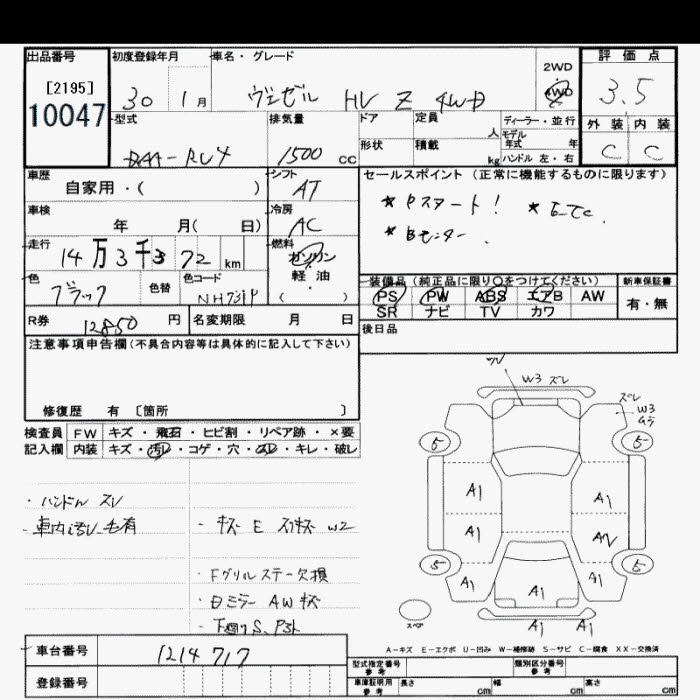 出品番号 初度登録年月 車名・グレード 2WD 評価点
[2195] 30 1月 ヴェゼル HV Z 4WD 4WD 3.5
10047 型式 排気量 ドア 定員 人 ディーラー・並行 外装 内装
DAA-RU4 1500 CC 形状 積載 kg モデル年式 年 ハンドル 左・右 C C
車歴 自家用・( ) シフト AT セールスポイント (正常に機能するものに限ります)
車検 年 月( 日) 冷房 AC * Pスタート! * Eーtc.
走行 14万3千372 km 燃料 ガソリン * Bモニター.
軽・油
( )
色 ブラック 色替 色コード NH731P 装備品(純正品に限り○をつけてください) 新車保証書
PS PW ABS エアB AW 有・無
SR ナビ TV カワ
R券 12850 円 名変期限 月 日 後日品
注意事項申告欄(不具合内容等は具体的に記入して下さい)
修復歴 有 〔箇所 〕
検査員 FW キズ・飛石・ヒビ割・リペア跡・×要
記入欄 内装 キズ・汚レ・コゲ・穴・スレ・キレ・破レ
・ハンドル スレ
・車内汚レ毛有 ・キズ E スリキズ W2
・Fグリル ステー欠損
・日ミラー AWキズ
・下廻りS,
W3 ズレ
ズレ
W3
5 5
A1 A1
A1 A2
5 5
A1 A1 A1
スペア A1 A1
A-キズ E-エクボ U-凹み W-補修跡 S-サビ C-腐食 XX-交換済
車台番号 1214717 型式指定番号 参考 類別区分番号 参考
登録番号 車庫証明用 参考 長さ cm 幅 cm 高さ cm